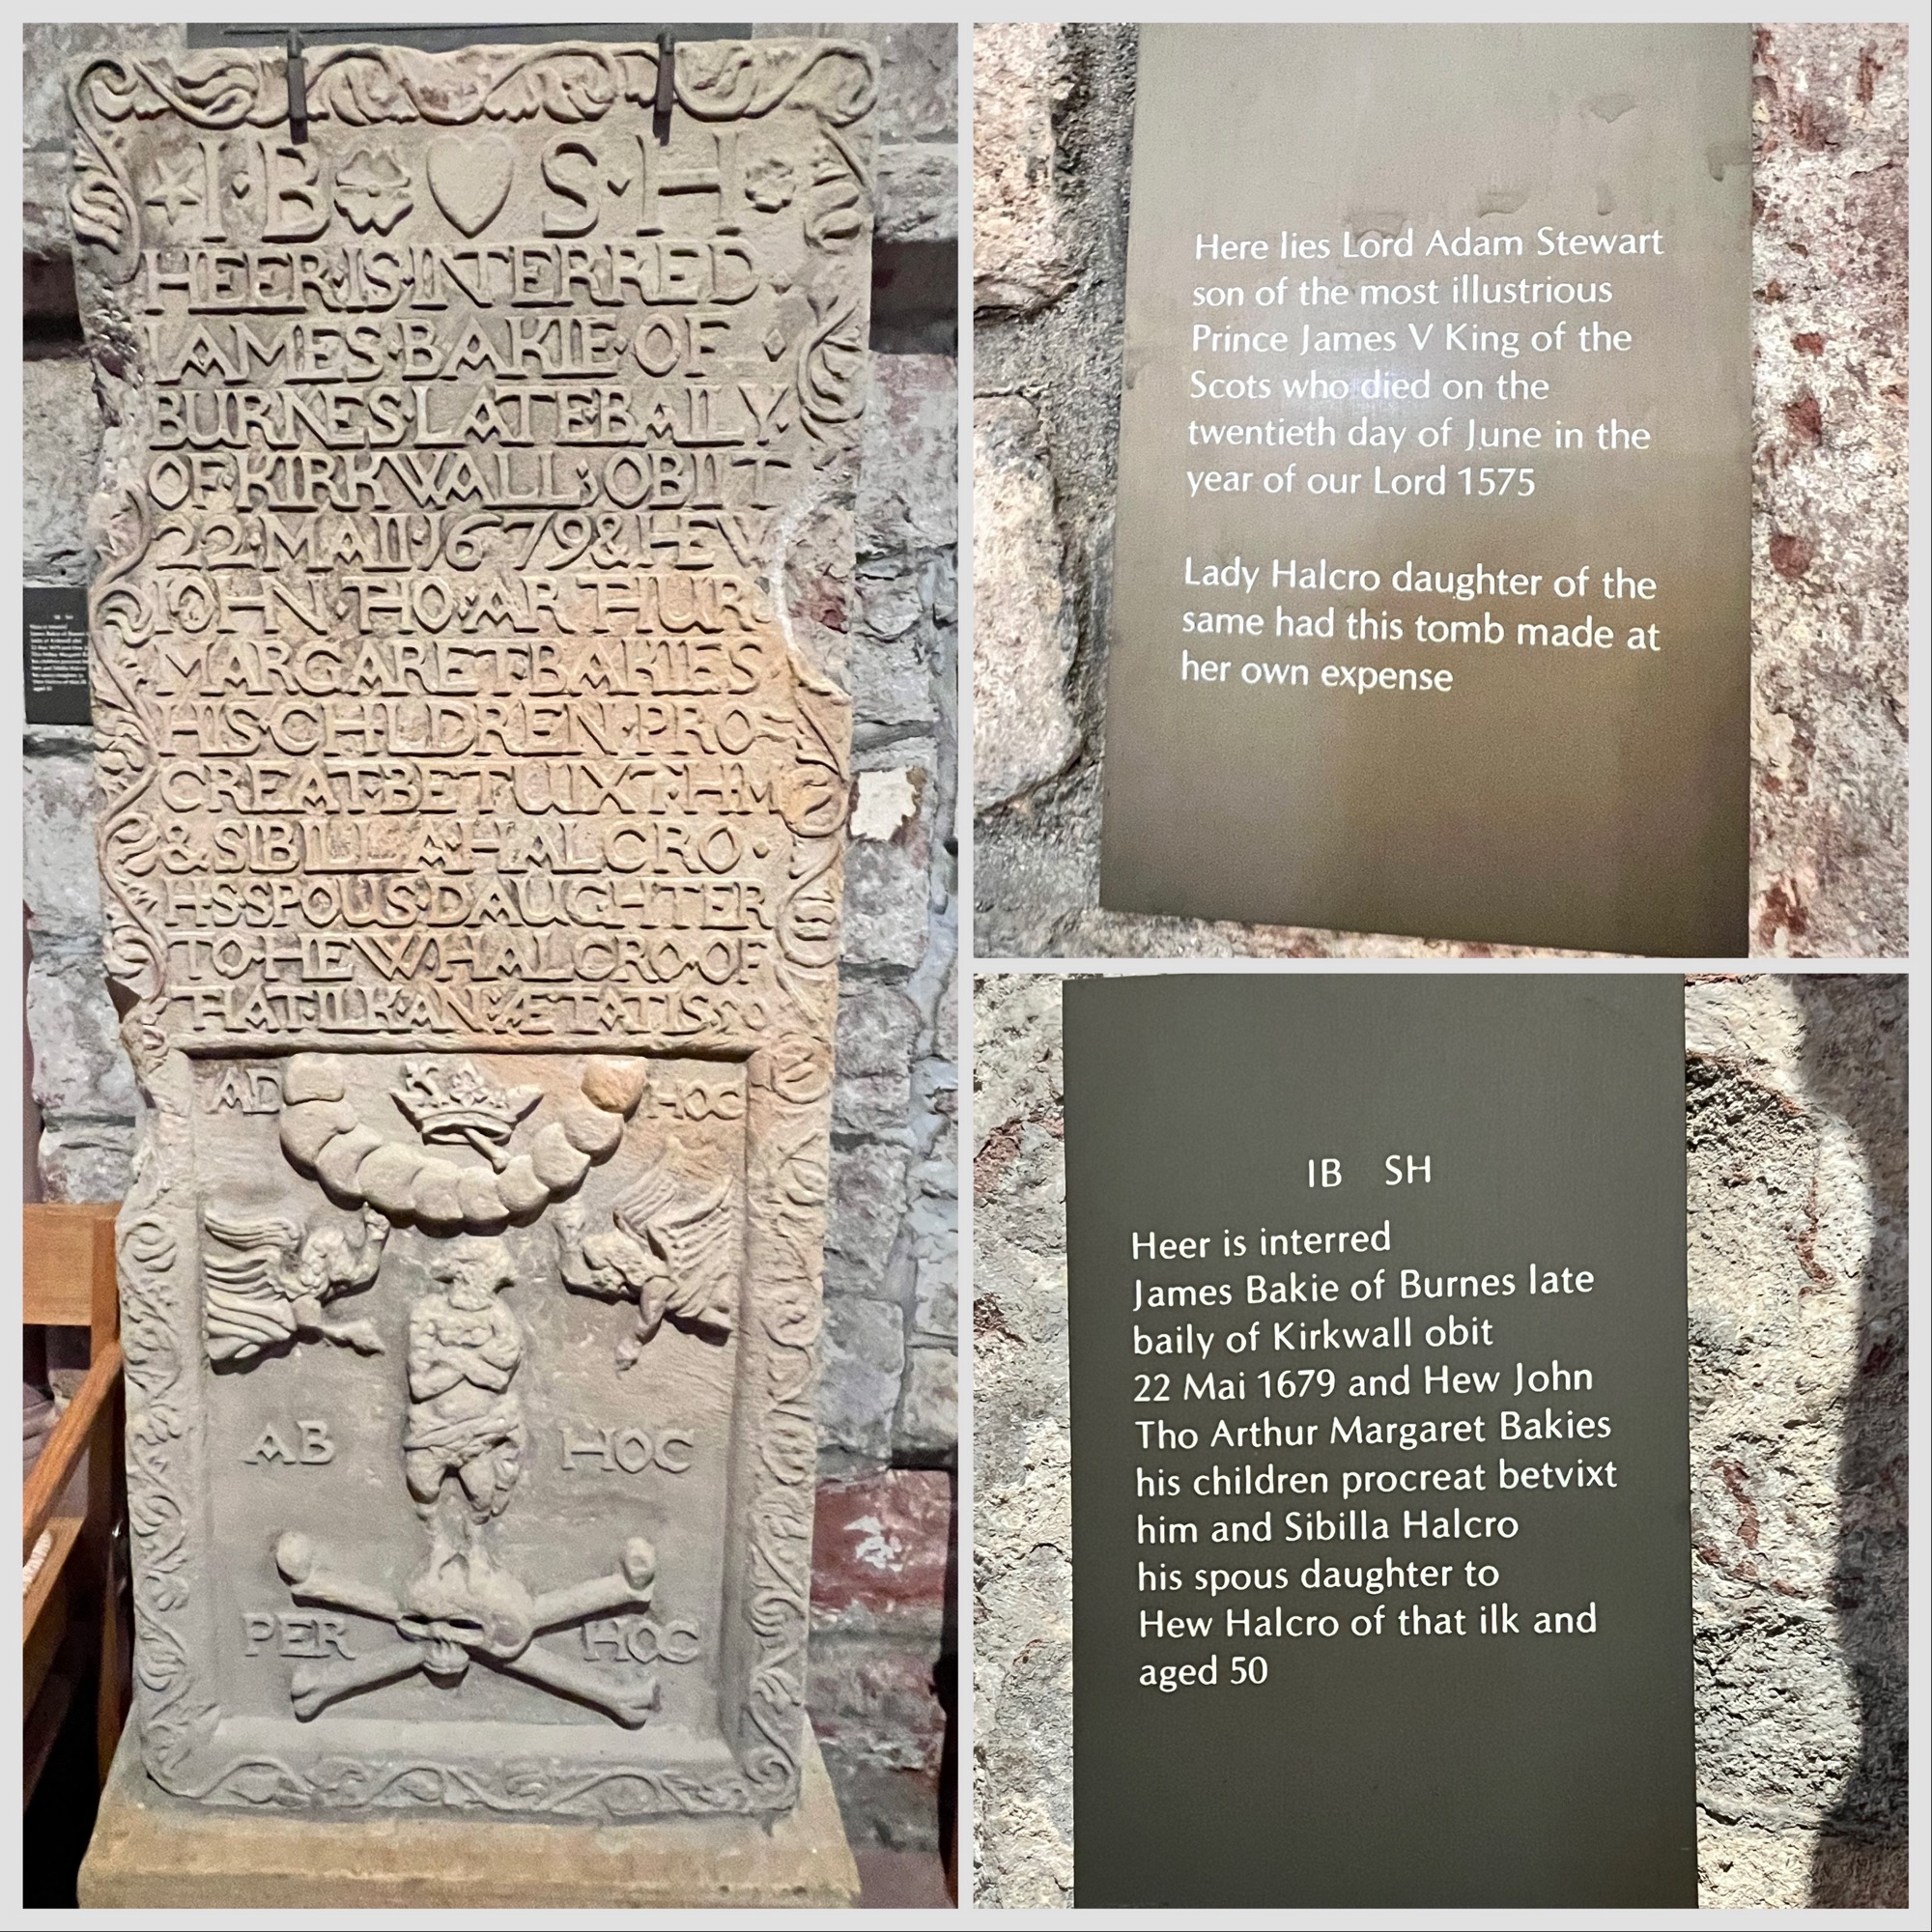 I·B S·H
HEER·IS·INTERRED
IAMES·BAKIE·OF
BURNES·LATE BAILY
OF·KIRKWALL; OBIIT
22·MAII·1679 & HEW
IOHN·THO·ARTHUR
MARGARET BAKIES
HIS·CHILDREN·PRO-
CREAT·BETUIXT·HIM
& SIBILLA·HALCRO·
HIS SPOUS·DAUGHTER
TO·HEW·HALCRO·OF
THAT·ILK·AN ÆTATIS 50
AD HOC
AB HOC
PER HOC
Here lies Lord Adam Stewart
son of the most illustrious
Prince James V King of the
Scots who died on the
twentieth day of June in the
year of our Lord 1575
Lady Halcro daughter of the
same had this tomb made at
her own expense
IB SH
Heer is interred
James Bakie of Burnes late
baily of Kirkwall obit
22 Mai 1679 and Hew John
Tho Arthur Margaret Bakies
his children procreat betvixt
him and Sibilla Halcro
his spous daughter to
Hew Halcro of that ilk and
aged 50